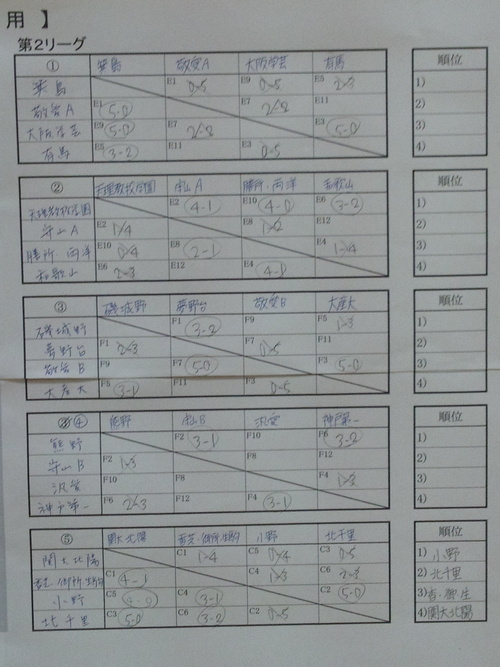 用 】
第2リーグ
① 葉鳥 敬愛A 大阪学芸 有馬 順位
E1 0-5 E9 0-5 E5 2-3 1)
敬愛A E1 5-0 E7 E11 2)
大阪学芸 E9 5-0 E7 E3 5-0 3)
有馬 E5 3-2 E11 E3 0-5 4)
② 天理教校学園 守山A 膳所・両洋 和歌山 順位
天理教校学園 E2 4-1 E10 4-0 E6 3-2 1)
守山A E2 1-4 E8 1-2 E12 2)
膳所・両洋 E10 0-4 E8 2-1 E4 1-4 3)
和歌山 E6 2-3 E12 E4 4-1 4)
③ 磯城野 夢野台 敬愛B 大産大 順位
磯城野 F1 3-2 F9 F5 1-3 1)
夢野台 F1 2-3 F7 0-5 F11 2)
敬愛B F9 F7 5-0 F3 5-0 3)
大産大 F5 3-1 F11 F3 0-5 4)
④ 熊野 守山B 神戸第一 順位
熊野 F2 3-1 F10 F6 3-2 1)
守山B F2 1-3 F8 F12 2)
F10 F8 F4 1-3 3)
神戸第一 F6 2-3 F12 F4 3-1 4)
⑤ 関大北陽 香芝・御所生駒 小野 北千里 順位
関大北陽 C1 1-4 C5 0-4 C3 0-5 1) 小野
香芝・御所生駒 C1 4-1 C4 1-3 C6 2-3 2) 北千里
小野 C5 4-0 C4 3-1 C2 5-0 3) 香・御・生
北千里 C3 5-0 C6 3-2 C2 0-5 4) 関大北陽